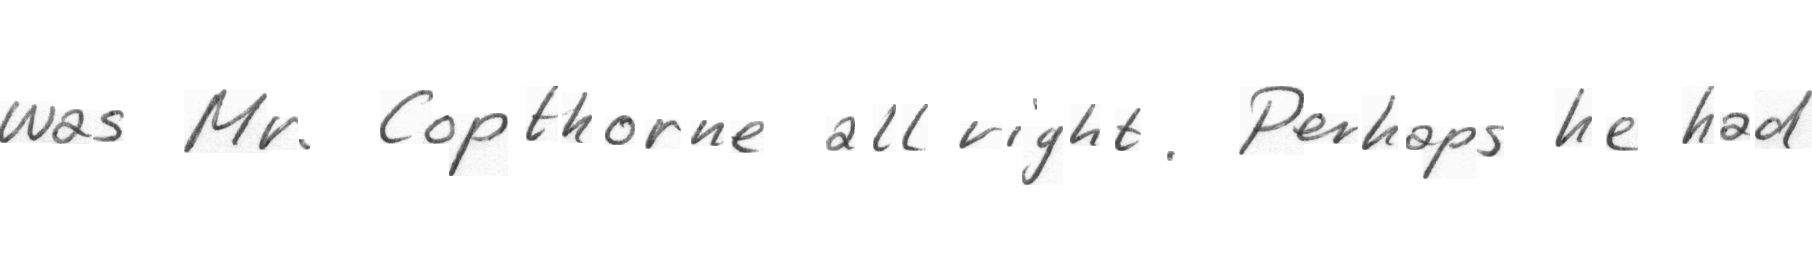 was Mr. Copthorne all right. Perhaps he had